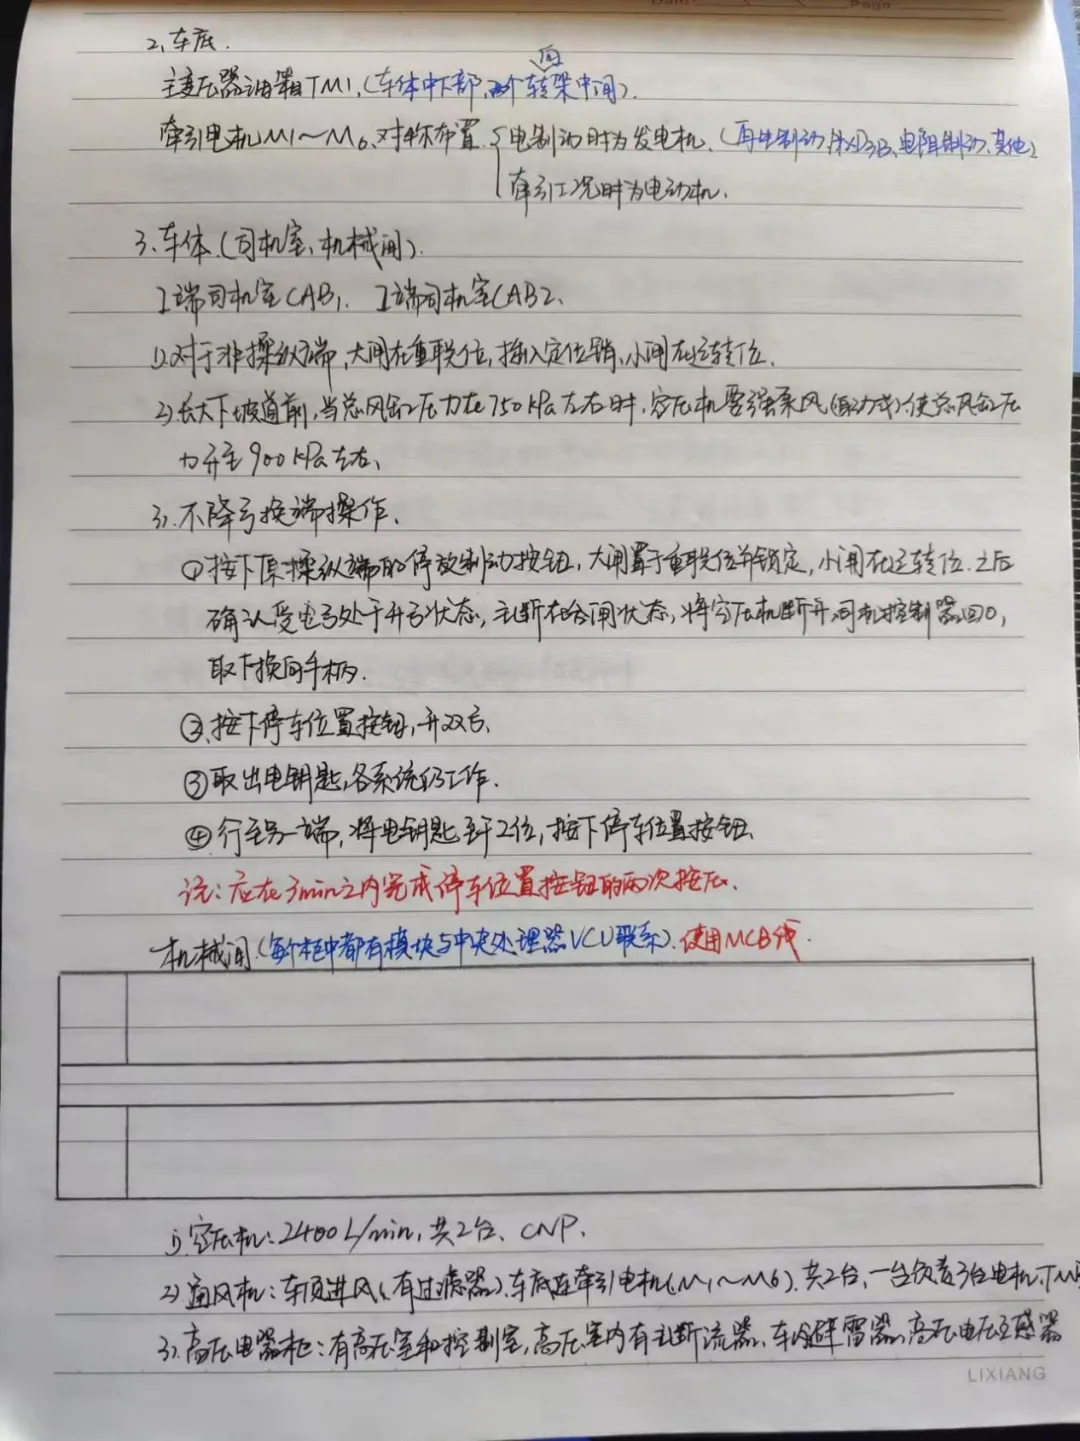 Date Page
2、车底.
主变压器油箱TM1,(车体中下部,两个转向架中间).
牵引电机M1～M6、对称布置.{电制动时为发电机.(再生制动,电阻制动、其他)
牵引工况时为电动机.
3、车体(司机室、机械间).
I端司机室CAB1. II端司机室CAB2、
1).对于非操纵端,大闸在重联位,插入定位销,小闸在运转位.
2).长大下坡道前,当总风缸压力在750kPa左右时,空压机要强泵风(手动)使总风缸压
力升至900kPa左右、
3).不降弓换端操作.
①按下原操纵端的停放制动按钮,大闸置于重联位并锁定,小闸在运转位.之后
确认受电弓处于升弓状态,主断在合闸状态,将空压机断开,司机控制器回0,
取下换向手柄.
②、按下停车位置按钮,升双弓.
③取出电钥匙,各系统仍工作.
④行至另一端,将电钥匙至于2位,按下停车位置按钮、
注:应在3min之内完成停车位置按钮的两次按压、
机械间.(每个柜中都有模块与中央处理器VCU联系).使用MCB线.
1).空压机:2400L/min,共2台、CNP.
2).通风机:车顶进风(有过滤器)、车底连牵引电机(M1～M6).共2台,一台负责3台电机,TM
3).高压电器柜:有高压室和控制室,高压室内有主断流器、车顶避雷器,高压电压互感器
LIXIANG